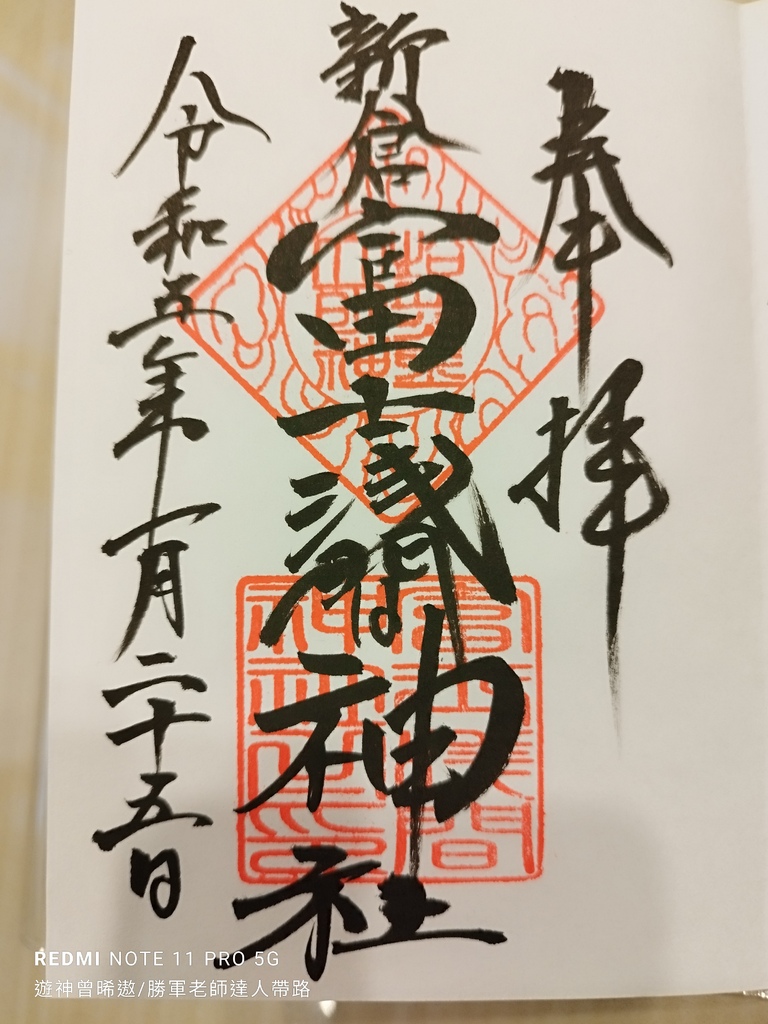 奉拝
新倉富士浅間神社
令和五年一月二十五日
富士浅間
神社之印
REDMI NOTE 11 PRO 5G
遊神曾晞遨/勝軍老師達人帶路